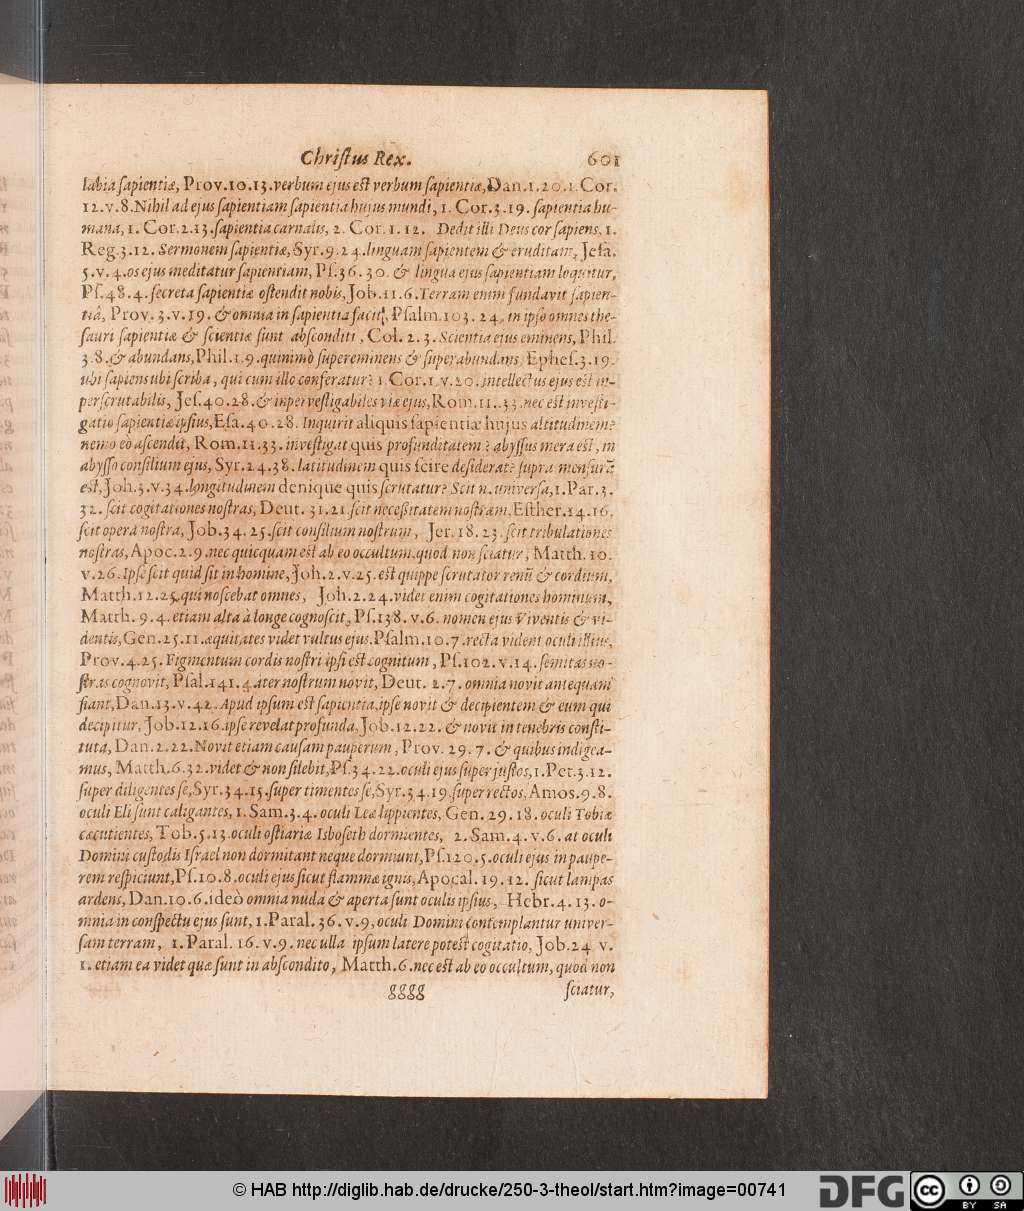 Chriſtus Rex. 601
labia ſapientiæ, Prov.10.13.verbum ejus eſt verbum ſapientiæ, Dan.1.20.1.Cor.
12.v.8.Nihil ad ejus ſapientiam ſapientia hujus mundi, 1. Cor.3.19. ſapientia hu-
mana, 1. Cor.2.13.ſapientia carnalis, 2. Cor.1.12. Dedit illi Deus cor ſapiens, 1.
Reg.3.12. Sermonem ſapientiæ, Syr.9.24.linguam ſapientem & eruditam, Jeſa.
5.v.4.os ejus meditatur ſapientiam, Pſ.36.30. & lingua ejus ſapientiam loquitur,
Pſ.48.4. ſecreta ſapientiæ oſtendit nobis, Job.11.6.Terram enim fundavit ſapien-
tiâ, Prov.3.v.19. & omnia in ſapientia facit, Pſalm.103.24. in ipſo omnes the-
ſauri ſapientiæ & ſcientiæ ſunt abſconditi, Col.2.3. Scientia ejus eminens, Phil.
3.8.& abundans, Phil.1.9.quinimò ſupereminens & ſuperabundans, Epheſ.3.19.
ubi ſapiens ubi ſcriba, qui cum illo conferatur? 1.Cor.1.v.20.intellectus ejus eſt im-
perſcrutabilis, Jeſ.40.28.& inperveſtigabiles viæ ejus, Rom.11.33.nec eſt inveſti-
gatio ſapientiæ ipſius, Eſa.40.28. Inquirit aliquis ſapientiæ hujus altitudinem?
nemo eò aſcendit, Rom.11.33. inveſtigat quis profunditatem? abyſſus mera eſt, in
abyſſo conſilium ejus, Syr.24.38.latitudinem quis ſcire deſiderat? ſupra menſurã
eſt, Joh.3.v.34.longitudinem denique quis ſcrutatur? Scit n. univerſa, 1.Par.3.
32. ſcit cogitationes noſtras, Deut. 31.21.ſcit neceſſitatem noſtram, Eſther.14.16.
ſcit opera noſtra, Job.34.25.ſcit conſilium noſtrum, Jer.18.23.ſcit tribulationes
noſtras, Apoc.2.9.nec quicquam eſt ab eo occultum, quod non ſciatur, Matth.10.
v.26.Ipſe ſcit quid ſit in homine, Joh.2.v.25.eſt quippe ſcrutator renũ & cordium,
Matth.12.25.qui noſcebat omnes, Joh.2.24.videt enim cogitationes hominum,
Matth.9.4.etiam alta à longe cognoſcit, Pſ.138.v.6.nomen ejus Viventis & vi-
dentis, Gen.25.11.æquitates videt vultus ejus.Pſalm.10.7.recta vident oculi illius,
Prov.4.25. Figmentum cordis noſtri ipſi eſt cognitum, Pſ.102.v.14.ſemitas no-
ſtras cognovit, Pſal.141.4.iter noſtrum novit, Deut.2.7. omnia novit antequam
fiant, Dan.13.v.42.Apud ipſum eſt ſapientia, ipſe novit & decipientem & eum qui
decipitur, Job.12.16.ipſe revelat profunda, Job.12.22. & novit in tenebris conſti-
tuta, Dan.2.22.Novit etiam cauſam pauperum, Prov.29.7. & quibus indigea-
mus, Matth.6.32.videt & non ſilebit, Pſ.34.22.oculi ejus ſuper juſtos, 1.Pet.3.12.
ſuper diligentes ſe, Syr.34.15.ſuper timentes ſe, Syr.34.19.ſuper rectos, Amos.9.8.
oculi Eli ſunt caligantes, 1. Sam.3.4. oculi Leæ lippientes, Gen. 29.18. oculi Tobiæ
cæcutientes, Tob.5.13.oculi oſtiariæ Isboſeth dormientes, 2. Sam.4.v.6. at oculi
Domini cuſtodis Iſrael non dormitant neque dormiunt, Pſ.120.5.oculi ejus in paupe-
rem reſpiciunt, Pſ.10.8.oculi ejus ſicut flammæ ignis, Apocal.19.12. ſicut lampas
ardens, Dan.10.6.ideò omnia nuda & aperta ſunt oculis ipſius, Hebr.4.13. o-
mnia in conſpectu ejus ſunt, 1.Paral.36.v.9, oculi Domini contemplantur univer-
ſam terram, 1.Paral.16.v.9.nec ulla ipſum latere poteſt cogitatio, Job.24 v.
1.etiam ea videt quæ ſunt in abſcondito, Matth.6.nec eſt ab eo occultum, quod non
gggg ſciatur,
© HAB http://diglib.hab.de/drucke/250-3-theol/start.htm?image=00741
DFG cc BY SA